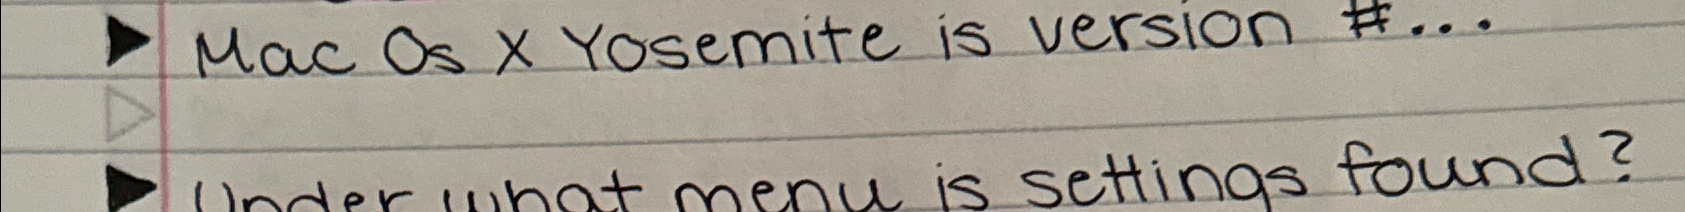 Mac Os X Yosemite is version #...
Under what menu is settings found?